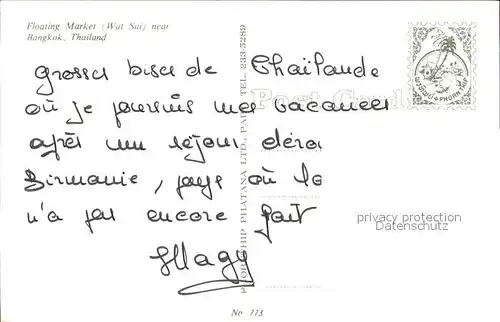 Floating Market (Wat Sai) near
Bangkok, Thailand
Post Card
PHORN THIP
PHORNTHIP PHATANA LTD., PART. TEL. 233-5289
grosses bises de Thaïlande
où je poursuis mes vacances
après un séjour
Birmanie, pays où
n'a pas encore fait
Magy
privacy protection
Datenschutz
No 773